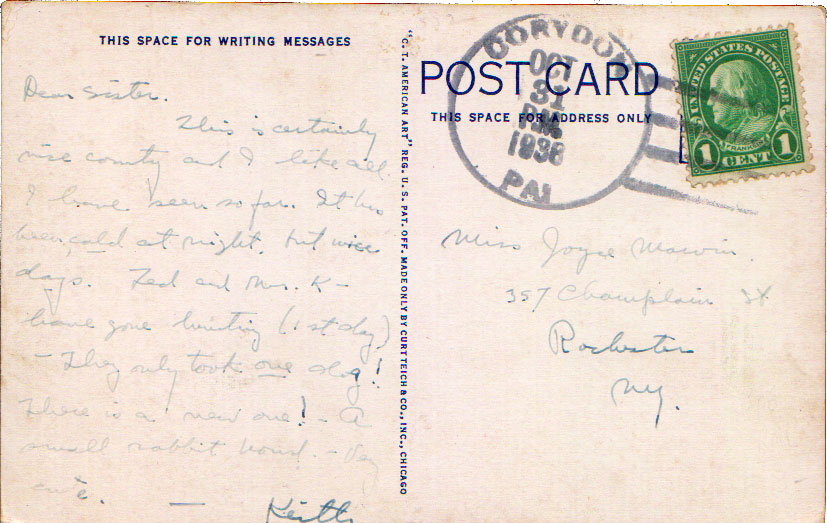 THIS SPACE FOR WRITING MESSAGES
Dear Sister.
This is certainly
nice country and I like all
I have seen so far. It has
been cold at night, but nice
days. Ted and Mr. K-
have gone hunting (1st day)
- They only took one dog!
There is a new one! - A
small rabbit hound. - Very
cute. —
Keith
"C. T. AMERICAN ART" REG. U. S. PAT. OFF. MADE ONLY BY CURT TEICH & CO., INC., CHICAGO
POST CARD
THIS SPACE FOR ADDRESS ONLY
CORYDON
OCT
31
P.M.
1936
PA.
UNITED STATES POSTAGE
FRANKLIN
1 CENT 1
Miss Joyce
357 Champlain St.
Rochester
NY.